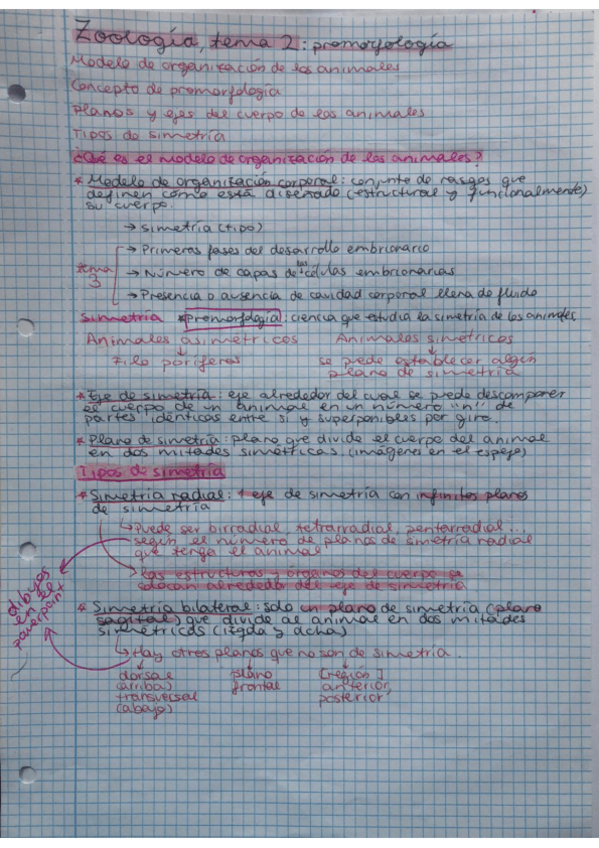 Zoología, tema 2: promorfología
Modelo de organización de los animales
Concepto de promorfología
Planos y ejes del cuerpo de los animales
Tipos de simetría
¿Qué es el modelo de organización de los animales?
* Modelo de organización corporal: conjunto de rasgos que
definen cómo está diseñado (estructural y funcionalmente)
su cuerpo.
→ simetría (tipo)
→ Primeras fases del desarrollo embrionario
tema 3
→ Número de capas de las células embrionarias
→ Presencia o ausencia de cavidad corporal llena de fluido
Simetría *Promorfología: ciencia que estudia la simetría de los animales
Animales asimétricos Animales simétricos
Filo poríferos se puede establecer algún
plano de simetría
* Eje de simetría: eje alrededor del cual se puede descomponer
el cuerpo de un animal en un número "n" de
partes idénticas entre sí y superponibles por giro.
* Plano de simetría: plano que divide el cuerpo del animal
en dos mitades simétricas. (imágenes en el espejo)
Tipos de simetría
* Simetría radial: 1 eje de simetría con infinitos planos
de simetría
↳ Puede ser birradial, tetrarradial, pentarradial...
según el número de planos de simetría radial
que tenga el animal
→ las estructuras y órganos del cuerpo se
colocan alrededor del eje de simetría
dibujos
en el
powerpoint
* Simetría bilateral: solo un plano de simetría (plano
sagital) que divide al animal en dos mitades
simétricas (izqda y dcha)
↳ Hay otros planos que no son de simetría.
dorsal plano [región]
(arriba) frontal anterior,
transversal posterior
(abajo)